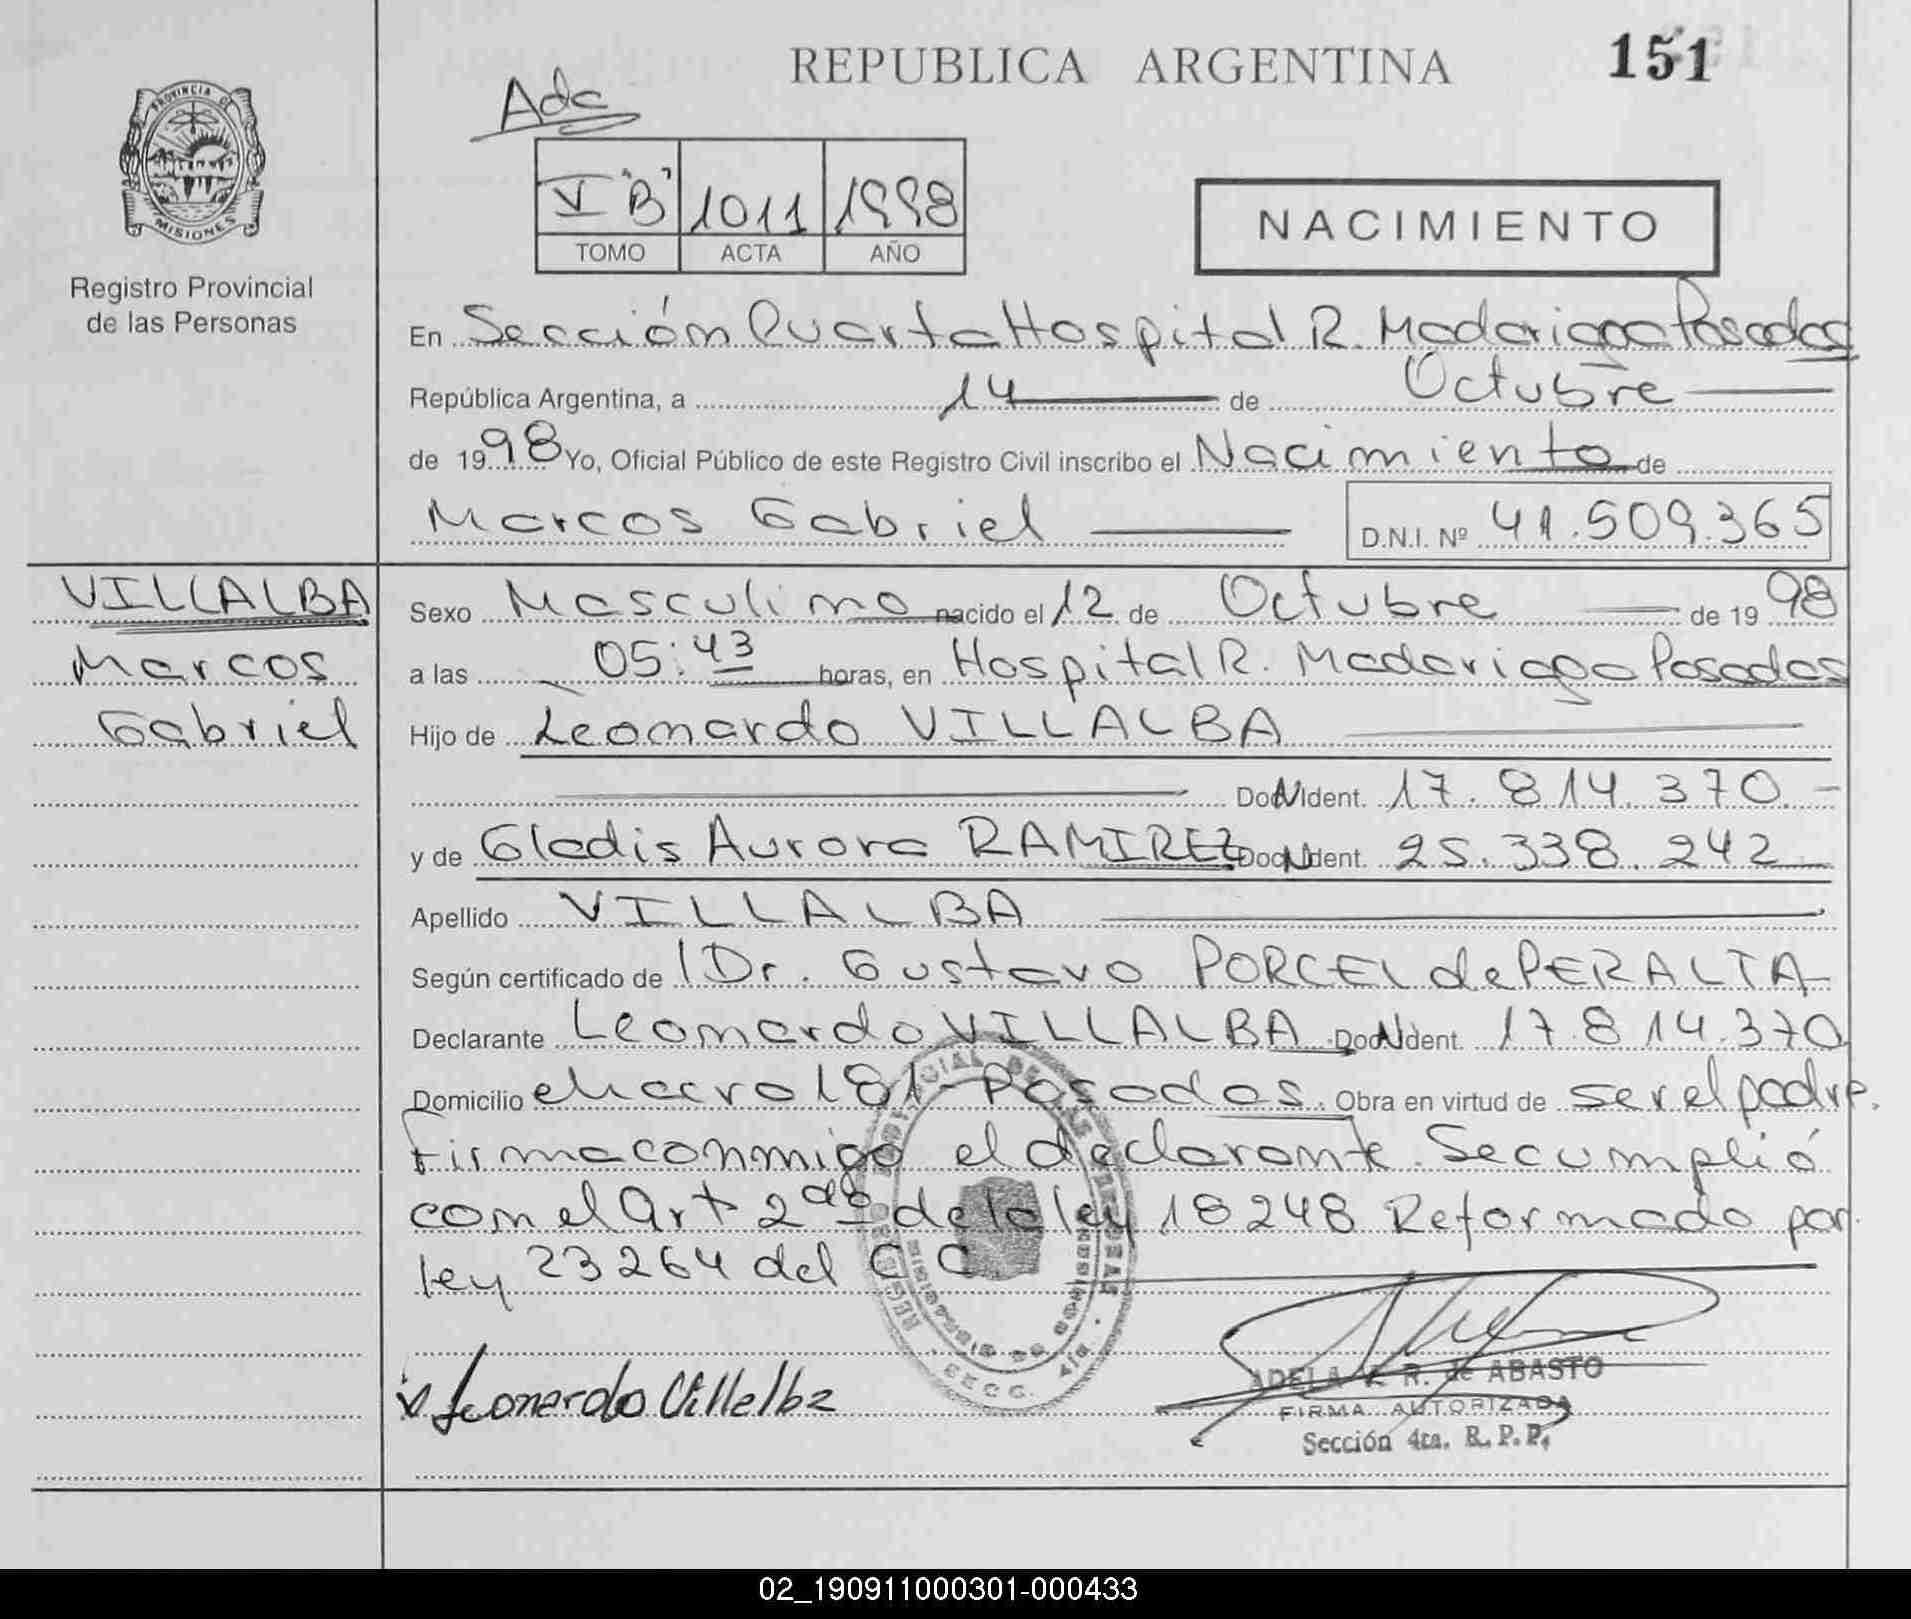 REPUBLICA ARGENTINA
151
Adc
PROVINCIA DE
MISIONES
Registro Provincial
de las Personas
V "B" 1011 1998
TOMO ACTA AÑO
NACIMIENTO
En Sección Cuarta Hospital R. Madariaga Posadas
República Argentina, a 14 de Octubre
de 1998 Yo, Oficial Público de este Registro Civil inscribo el Nacimiento de
Marcos Gabriel D.N.I. Nº 41.509.365
VILLALBA
Marcos
Gabriel
Sexo Masculino nacido el 12 de Octubre de 1998
a las 05:43 horas, en Hospital R. Madariaga Posadas
Hijo de Leonardo VILLALBA
Doc N Ident. 17.814.370.-
y de Gladis Aurora RAMIREZ Doc N Ident. 25.338.242
Apellido VILLALBA
Según certificado de Dr. Gustavo PORCEL de PERALTA
Declarante Leonardo VILLALBA Doc N Ident. 17.814.370
Domicilio chacra 181 - Posadas. Obra en virtud de ser el padre.
Firma conmigo el declarante. Se cumplió
con el Art 2do de la ley 18248 Reformado por
ley 23264 del C C
Leonardo Villalba
ADELA V. R. de ABASTO
FIRMA AUTORIZADA
Sección 4ta. R. P. P.
02_190911000301-000433